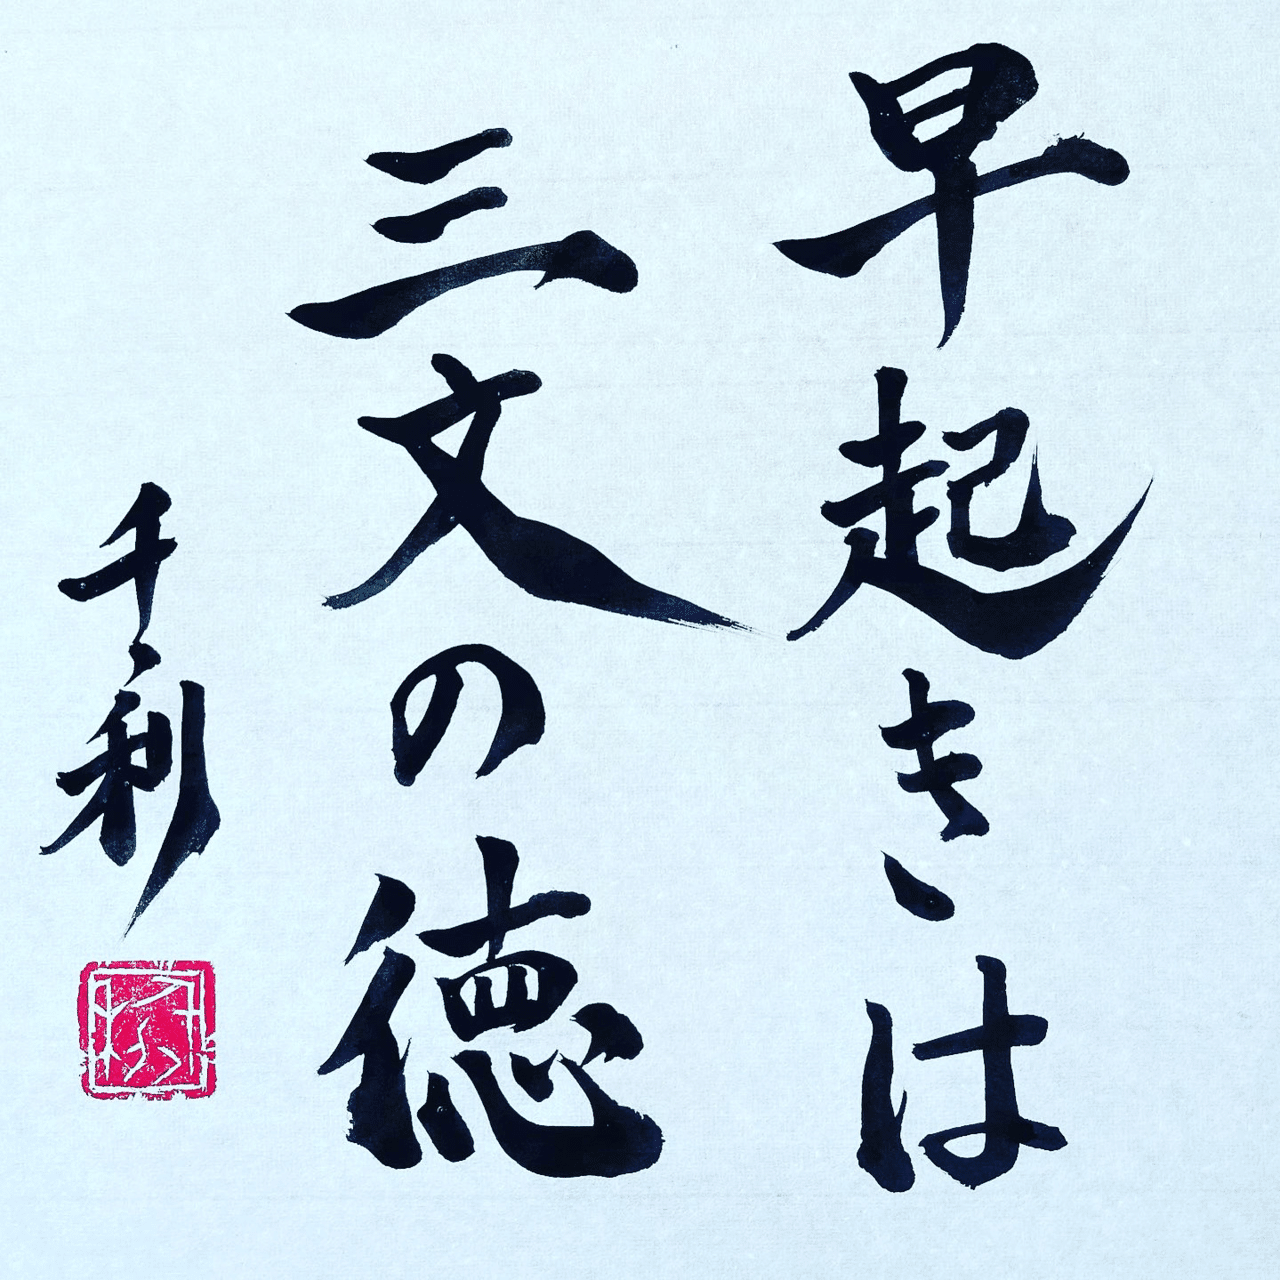 早起きは
三文の徳
千利